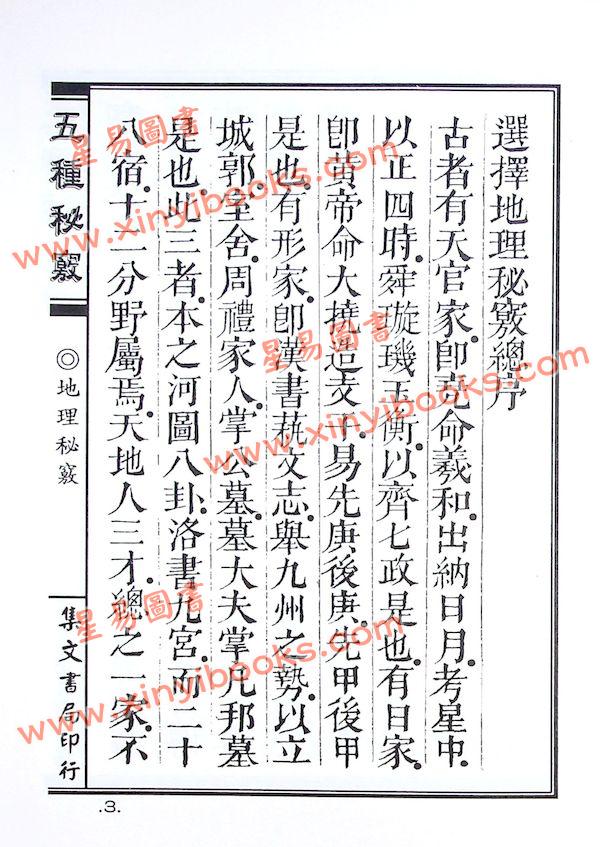 選擇地理秘竅總序
古者有天官家卽堯命羲和出納日月考星中
以正四時舜璇璣玉衡以齊七政是也有日家
卽黃帝命大撓造支干易先庚後庚先甲後甲
是也有形家卽漢書藝文志舉九州之勢以立
城郭室舍周禮家人掌公墓墓大夫掌凡邦墓
是也此三者本之河圖八卦洛書九宮而二十
八宿十二分野屬焉天地人三才總之一家不
五種秘竅
◎地理秘竅
集文書局印行
.3.
星易圖書
www.xinyibooks.com
星易圖書
www.xinyibooks.com
星易圖書
www.xinyibooks.com